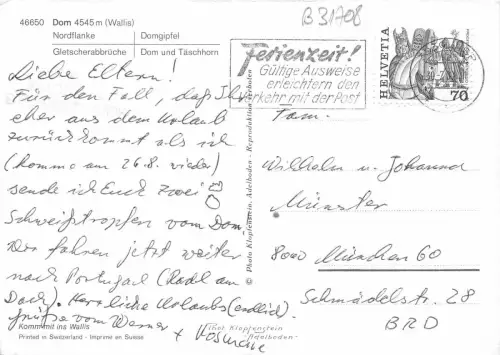 46650 Dom 4545 m (Wallis)
Nordflanke Domgipfel
Gletscherabbrüche Dom und Täschhorn
Liebe Eltern!
Für den Fall, daß Ihr
eher aus dem Urlaub
zurückkommt als ich
(komme am 26.8. wieder)
sende ich Euch zwei
Schweißtropfen vom Dom.
Wir fahren jetzt weiter
nach Portugal (Radl am
Dach). Herzliche Urlaubs(endlich)
grüße vom Werner +
Komm mit ins Wallis
Printed in Switzerland - Imprimé en Suisse
© Photo Klopfenstein, Adelboden - Reproduktion verboten
Photo Klopfenstein
Adelboden
B31708
Ferienzeit!
Gültige Ausweise
erleichtern den
Verkehr mit der Post
HELVETIA
70
Fam.
Wilhelm u. Johanna
Münster
8000 München 60
Schmädelstr. 28
BRD